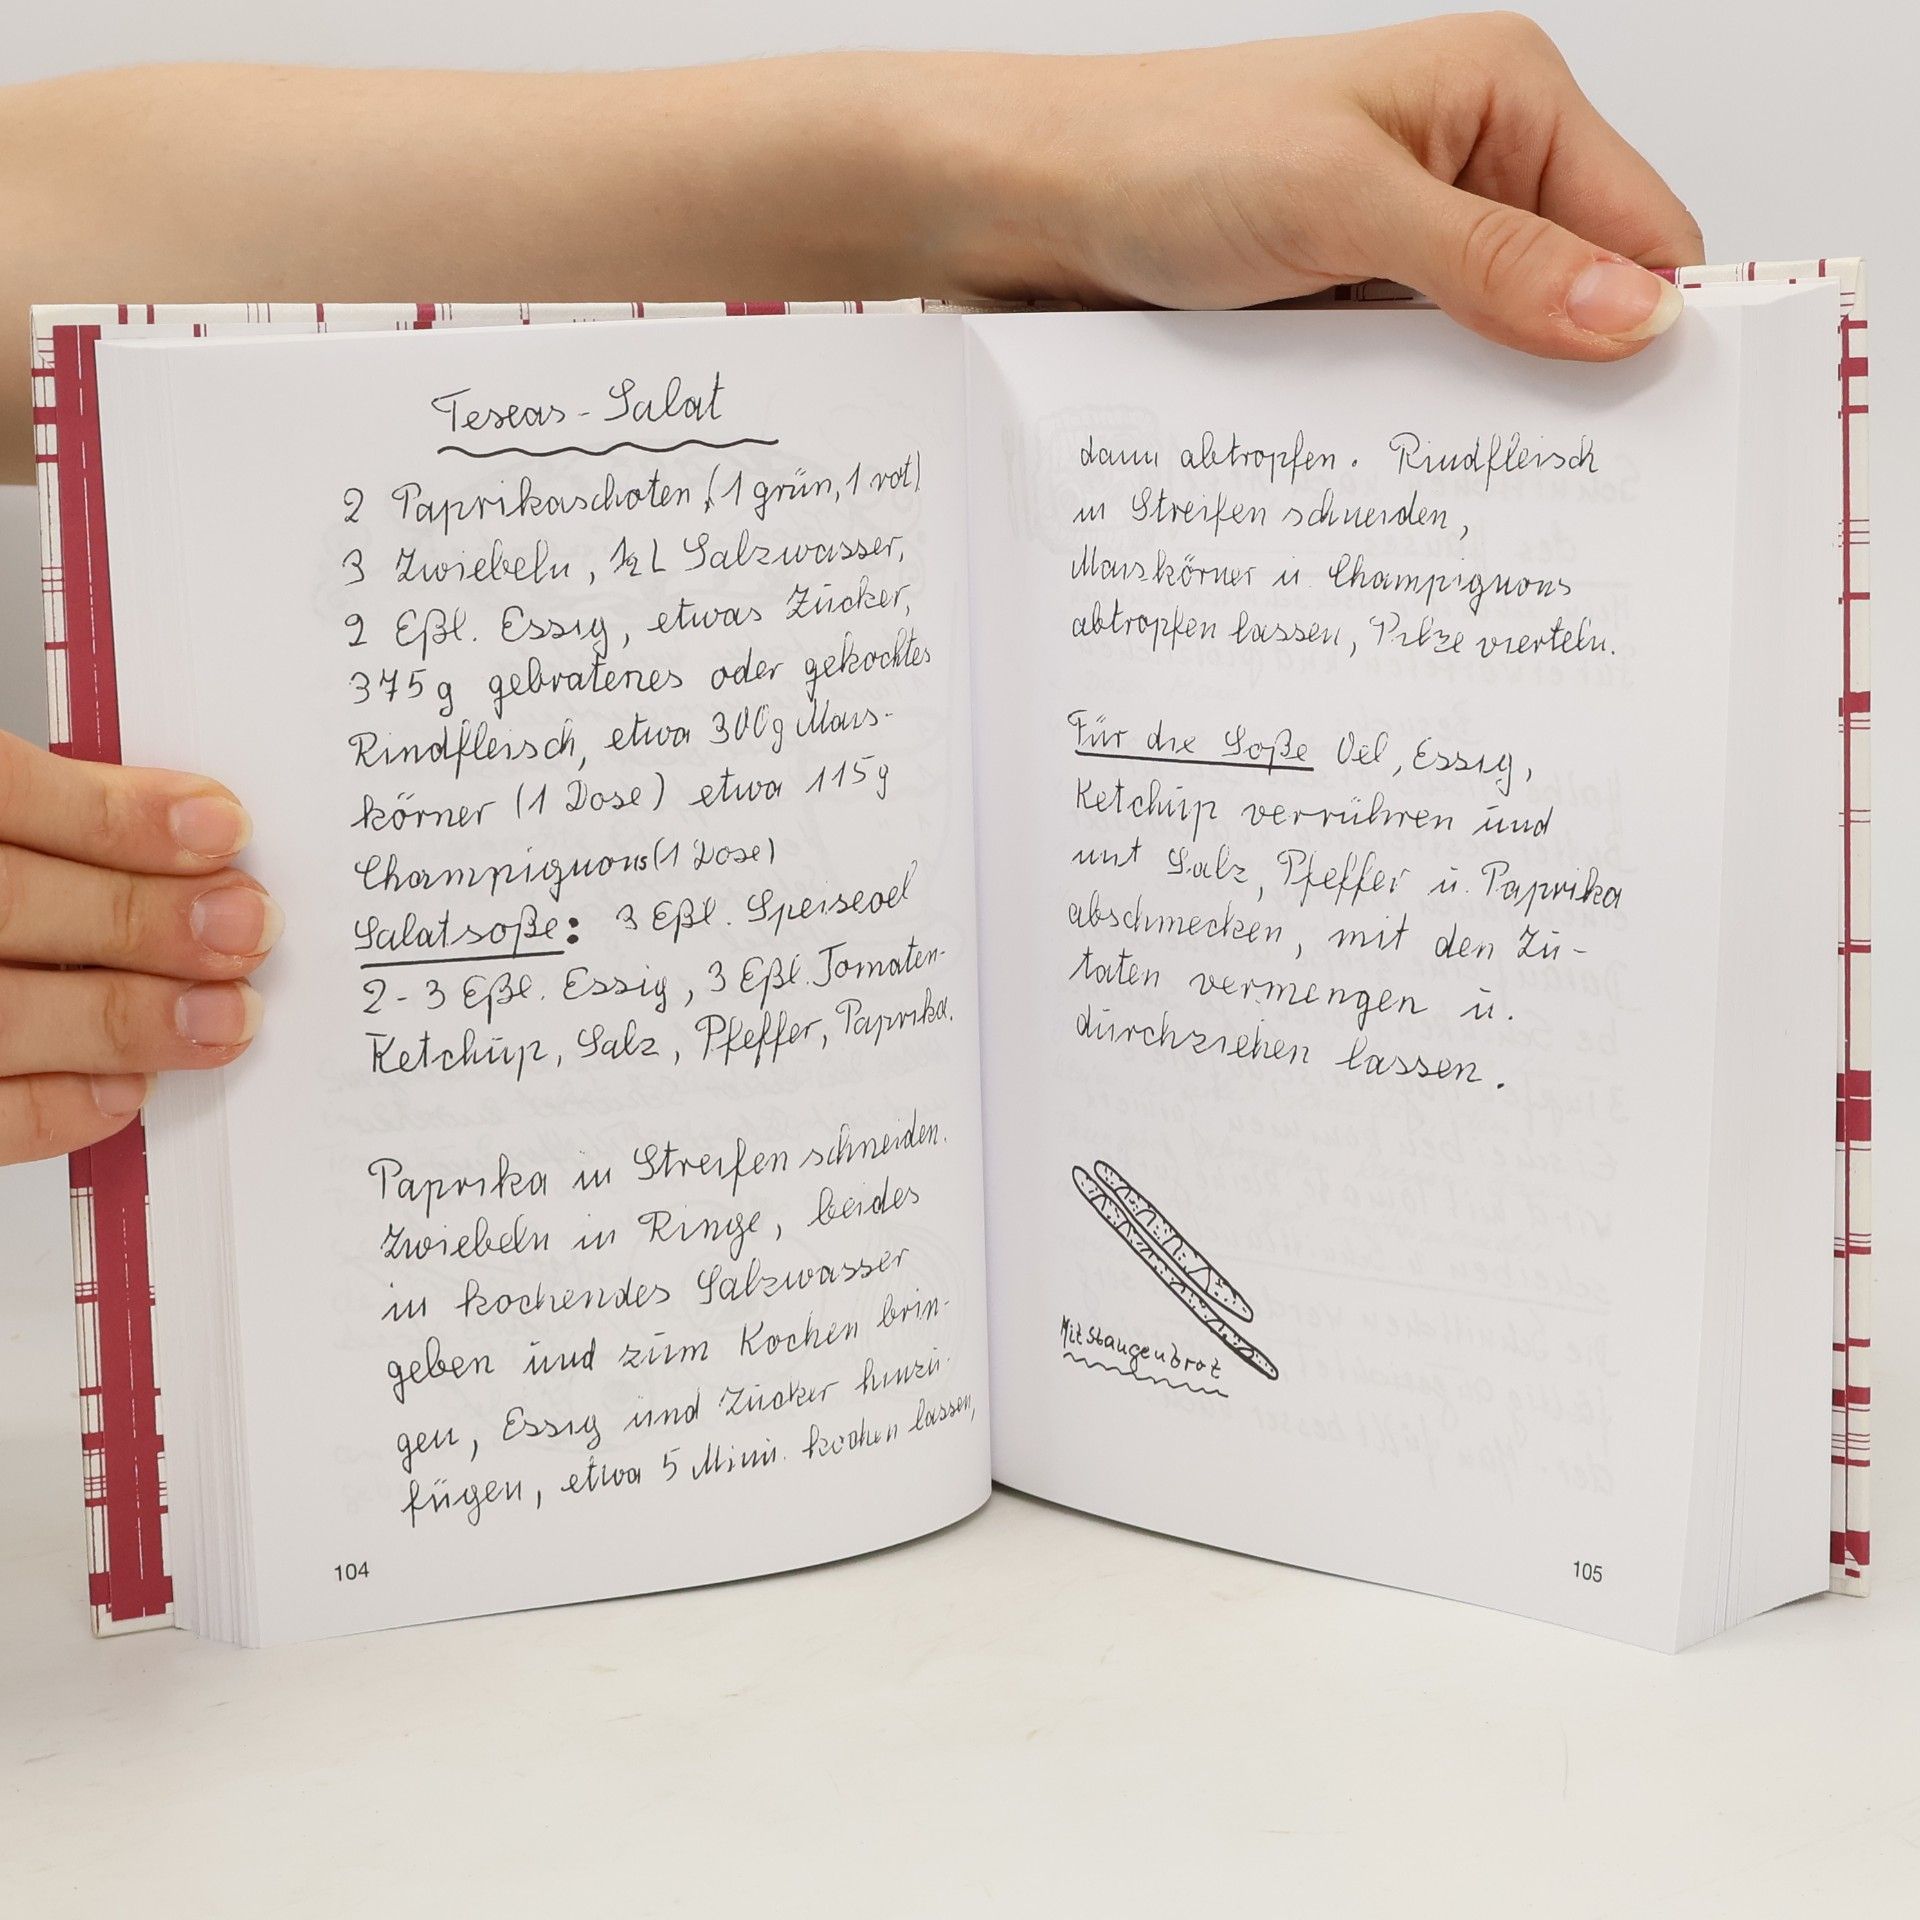 Teseas-Salat
2 Paprikaschoten (1 grün, 1 rot)
3 Zwiebeln, ½ L Salzwasser,
2 Eßl. Essig, etwas Zucker,
375g gebratenes oder gekochtes
Rindfleisch, etwa 300g Mais-
körner (1 Dose) etwa 115g
Champignons (1 Dose)
Salatsoße: 3 Eßl. Speiseoel
2-3 Eßl. Essig, 3 Eßl. Tomaten-
Ketchup, Salz, Pfeffer, Paprika.
Paprika in Streifen schneiden.
Zwiebeln in Ringe, beides
in kochendes Salzwasser
geben und zum Kochen brin-
gen, Essig und Zucker hinzu-
fügen, etwa 5 Min. kochen lassen,
104
dann abtropfen. Rindfleisch
in Streifen schneiden,
Maiskörner u. Champignons
abtropfen lassen, Pilze vierteln.
Für die Soße Oel, Essig,
Ketchup verrühren und
mit Salz, Pfeffer u. Paprika
abschmecken, mit den Zu-
taten vermengen u.
durchziehen lassen.
Mit Stangenbrot
105